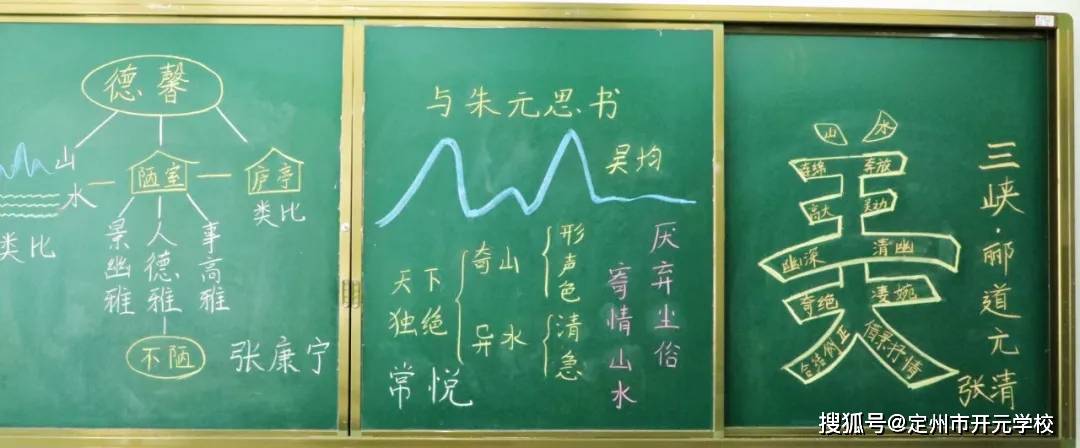 德馨
山
水
陋室
庐亭
类比
类比
景幽雅
人德雅
事高雅
不陋
张康宁
与朱元思书
吴均
天下
独绝
奇山
异水
形
声
色
清
急
寄情山水
厌弃尘俗
常悦
山
水
连绵
奔放
高大
灵动
幽深
清幽
奇绝
凄婉
借景抒情
三峡·郦道元
张清
搜狐号@定州市开元学校